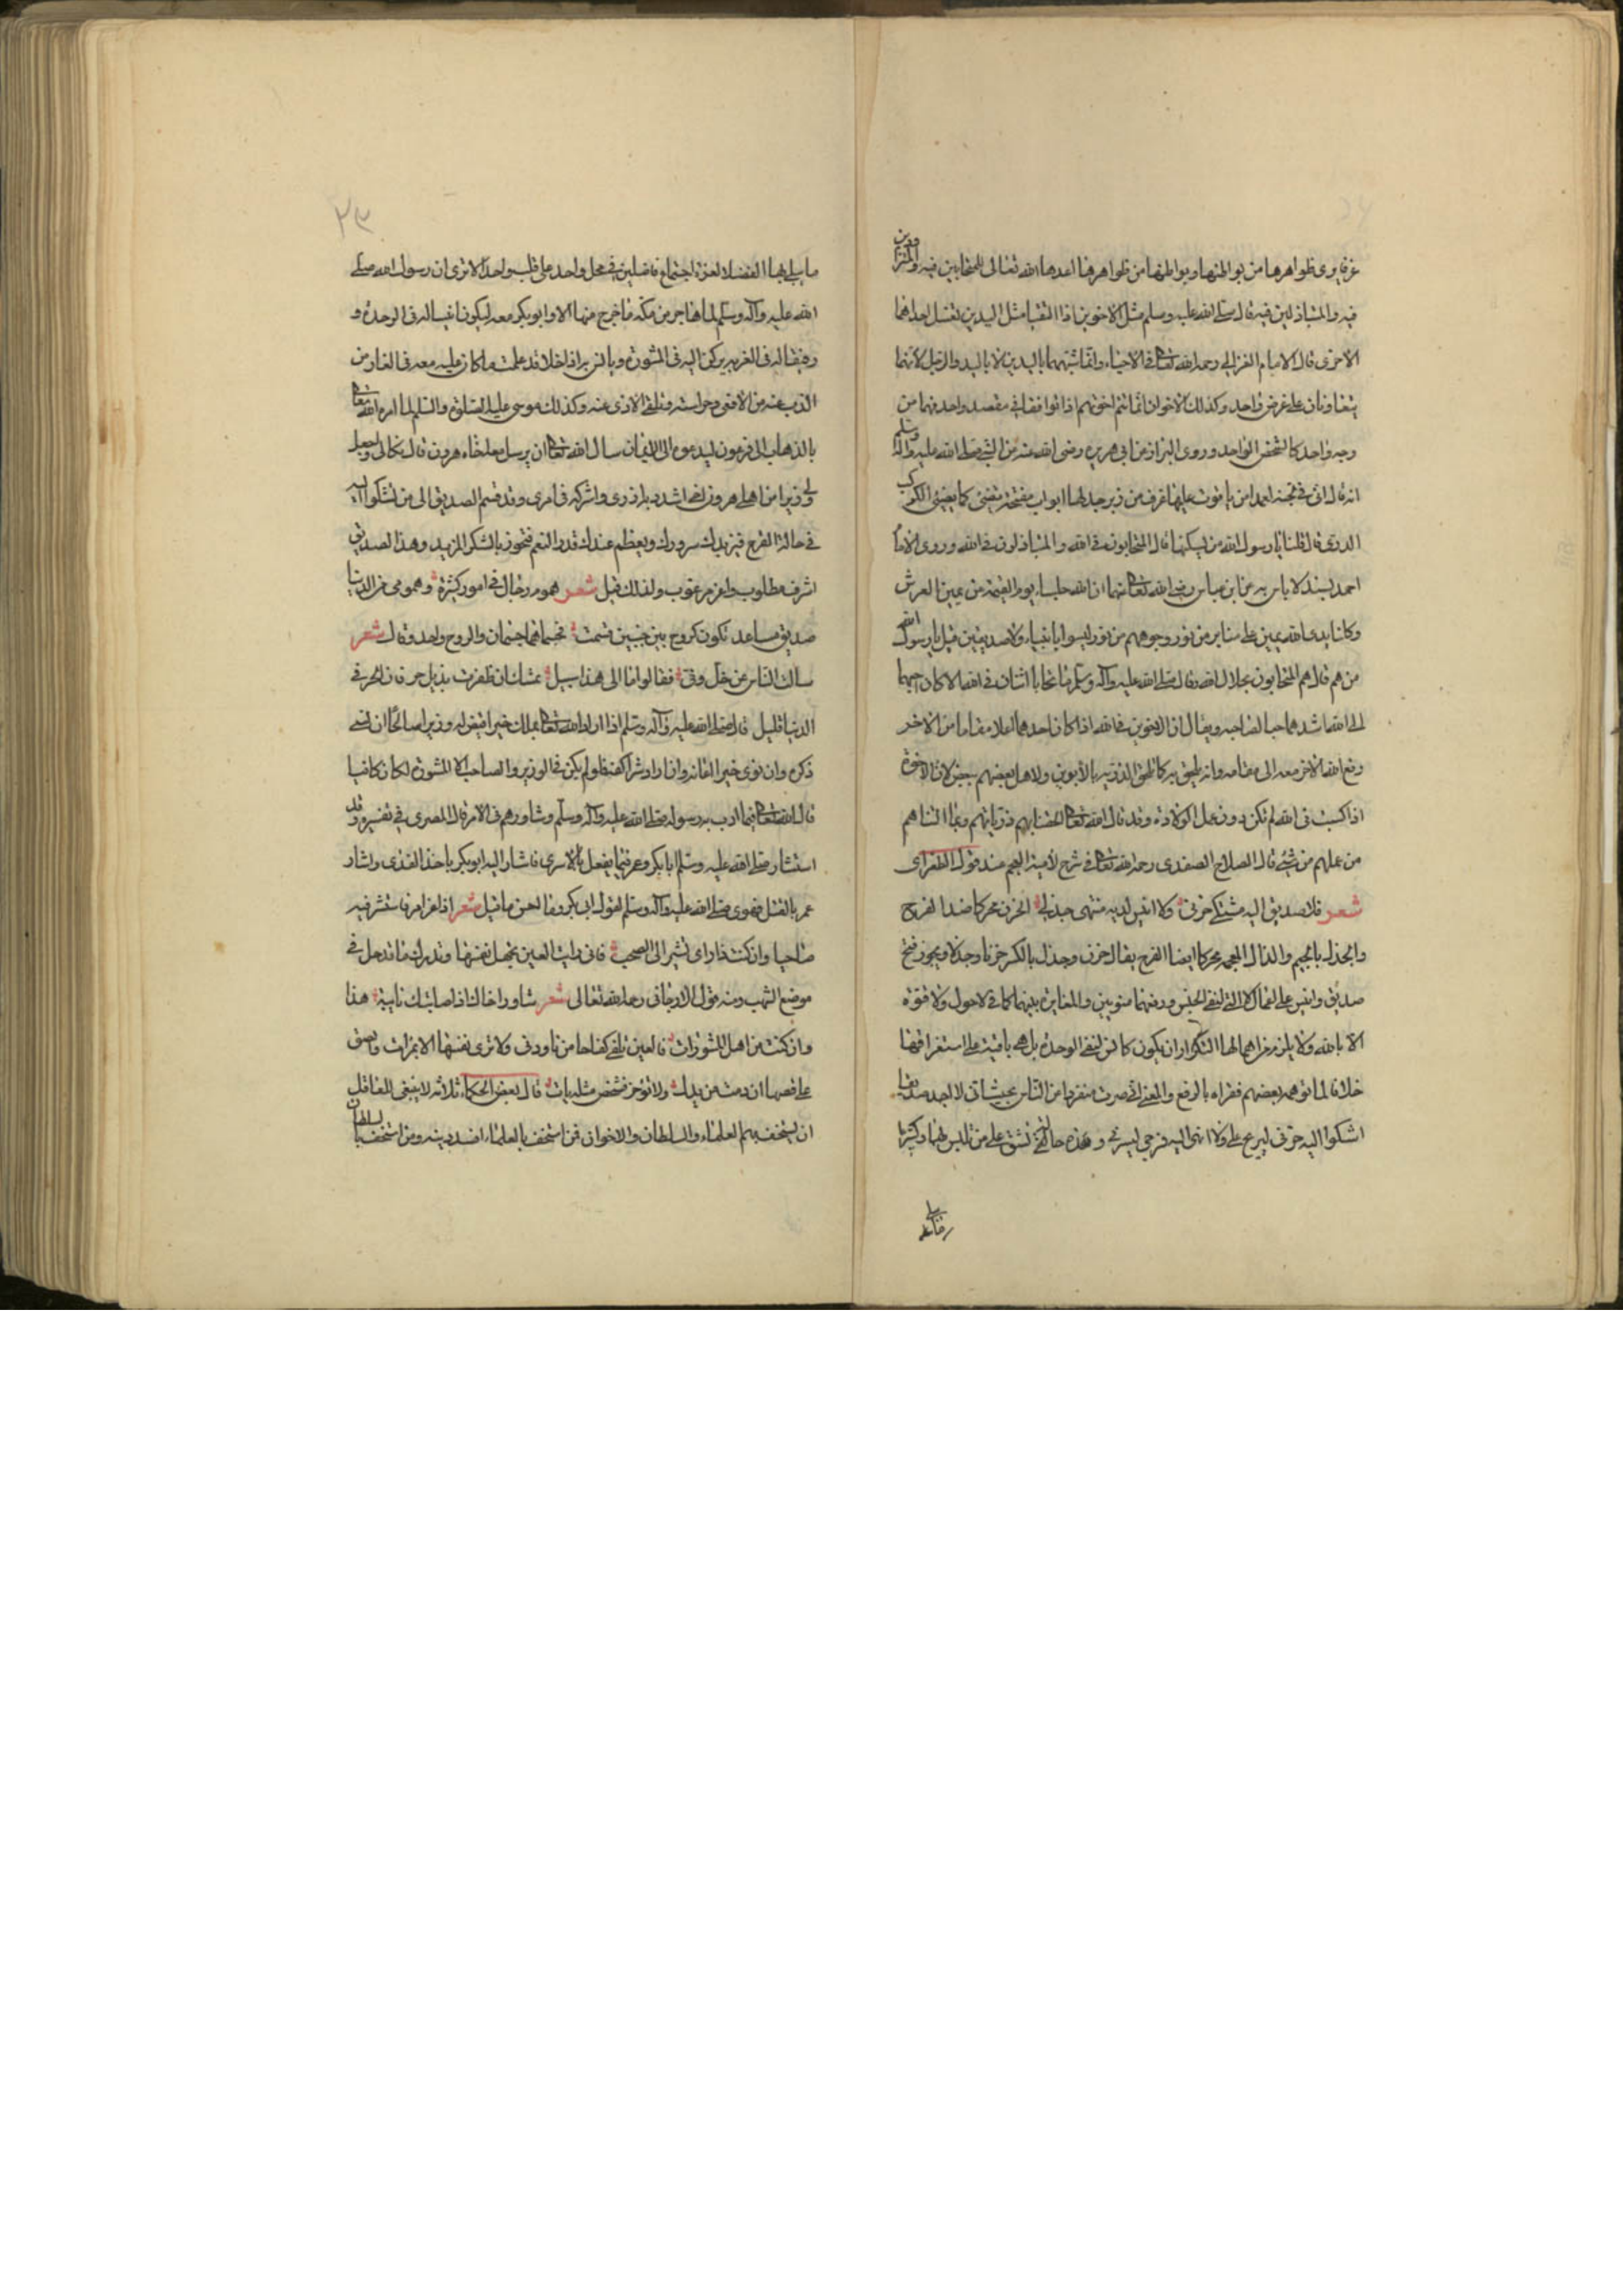 غرفا يرى ظواهرها من بواطنها وبواطنها من ظواهرها اعدها الله تعالى للمتحابين فيه والمتزاورين
فيه والمتباذلين فيه قال صلى الله عليه وسلم مثل الاخوين اذا التقيا مثل اليدين تغسل احداهما
الاخرى قال الامام الغزالي رحمه الله تعالى في الاحياء وانما شبههما باليدين لا باليد والرجل لانهما
يتعاونان على غرض واحد وكذلك الاخوان انما تتم اخوتهم اذا توافقا في مقصد واحد فهما من
وجه واحد كالشخص الواحد وروى البزاز عن ابي هريرة رضى الله عنه عن النبي صلى الله عليه واله وسلم
انه قال ان في الجنة لعمدا من ياقوت عليها غرف من زبرجد لها ابواب مفتحة تضيئ كما يضيئ الكوكب
الدري قال قلنا يا رسول الله من يسكنها قال المتحابون في الله والمتباذلون في الله وروى الامام
احمد بسند لا باس به عن ابن عباس رضى الله تعالى عنهما ان لله جلساء يوم القيمة عن يمين العرش
وكلتا يدى الله يمين على منابر من نور وجوههم من نور ليسوا بانبياء ولا صديقين قيل يا رسول الله
من هم قال هم المتحابون بجلال الله وقال صلى الله عليه وآله وسلم ما تحابا اثنان في الله الا كان احبهما
الى الله اشدهما حبا لصاحبه ويقال ان الاخوين في الله اذا كان احدهما اعلا مقاما من الاخر
رفع الله الاخر معه الى مقامه وانه يلحق به كما تلحق الذرية بالأبوين والاهل بعضهم ببعض لان الاخوة
اذا كسبت في الله لم تكن دون عمل الولادة وقد قال الله تعالى الحقنا بهم ذرياتهم وما التناهم
من عملهم من شئ قال الصلاح الصفدى رحمه الله تعالى في شرح لامية العجم عند قول الطغراى
شعر فلا صديق اليه مشتكى حزني ولا انيس لديه منتهى جذلي الحزن محركا ضد الفرح
والجذل بالجيم والذال المعجمة محركا ايضا الفرح يقال حزن وجذل بالكسر حزنا وجذلا ويجوز فتح
صديق وانيس على اعمال لا التي لنفي الجنس ورفعهما منونين والمغايرة بينهما كما في لا حول ولا قوة
الا بالله ولا يلزم من اهمالها التكرار ان يكون كالتي لنفي الوحدة بل هي باقية على استغراقها
خلافا لما توهمه بعضهم فقراه بالرفع والمعنى اني صرت منفردا من الناس بحيث اني لا اجد صديقا
اشكوا اليه حزني ليرع علي ولا انهى اليه فرحي ليسر لي وهذه حالة تشق على من تلبس بها وكثيرا
ما يبلى بها الفضلاء لعزة اجتماع فاضلين في محل واحد على قلب واحد الا ترى ان رسول الله صلى
الله عليه وآله وسلم لما هاجر من مكة ما خرج منها الا وابو بكر معه ليكون انيسا له في الوحدة و
رفيقا له في الغربة يركن اليه في المشورة ويانس براذا خلا قد علمت ما كان عليه معه في الغار من
الذب عنه من الافعى وحراسته وتلقى الاذى عنه وكذلك موسى عليه الصلوة والسلام لما امره الله تعالى
بالذهاب الى فرعون ليدعوه الى الايمان سال الله تعالى ان يرسل معه اخاه هرون قال تعالى واجعل
لي وزيرا من اهلي هرون اخي اشدد به ازري واشركه في امرى وقد قسم الصديق الى من تشكوا اليه
في حالة الفرح فيزيدك سرورك ويعظم عندك قدر النعم فتحوز بالشكر المزيد وهذا الصديق
اشرف مطلوب واعز مرغوب ولذلك قيل شعر هموم رجال في امور كثيرة وهمومي من الدنيا
صديق مساعد نكون كروح بين جنبين قسمت فجسماهما جسمان والروح واحد وقال شعر
سالت الناس عن خل وفي فقالوا ما الى هذا سبيل تمسك ان ظفرت بذيل حر فان الحر في
الدنيا قليل قال صلى الله عليه وآله وسلم اذا اراد الله تعالى بملك خيرا قيض له وزيرا صالحا ان نسى
ذكره وان نوى خيرا اعانه وان اراد شرا كفه فلو لم يكن في الوزير والصاحب الا المشورة لكان كافيا
قال الله تعالى فيما ادب به رسوله صلى الله عليه وآله وسلم وشاورهم في الامر قال المصرى في تفسيره وقد
استشار صلى الله عليه وسلم ابا بكر وعمر فيما يفعل بالاسرى فاشار اليه ابو بكر باخذ الفدى واشار
عمر بالقتل فهوى صلى الله عليه وآله وسلم لقول ابى بكر وما احسن ما قيل شعر اذا عز امر فاستشر فيه
صاحبا وان كنت ذا راى تشير الى الصحب فاني رايت العين تجهل نفسها وتدرك ما قد حل في
موضع الشهب ومنه قول الارجاني رحمه الله تعالى شعر شاور اخاك اذا صابتك نايبة هذا
وان كنت من اهل المشورات فالعين تلقى كفاحا من نأى ودنى ولا ترى نفسها الا بمرات
على فصها ان دمت من يدك ولا تؤخر فشخص مثله يات قال بعض الحكماء ثلاثة لا ينبغي للعاقل
ان يستخف بهم العلماء والسلطان والاخوان فمن استخف بالعلماء افسد دينه ومن استخف بالسلطان